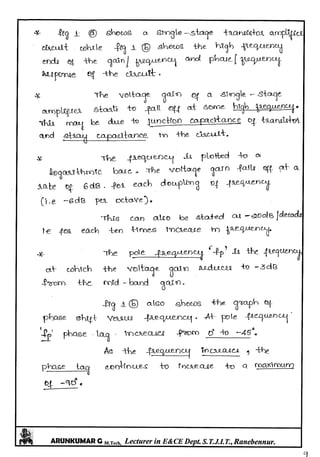 * fig 1: ⓐ shows a single-stage transistor amplifier
circuit while fig 1 ⓑ shows the high frequency
ends of the gain/frequency and phase/frequency
response of the circuit.
* The voltage gain of a single - stage
amplifier starts to fall off at some high frequency.
This may be due to junction capacitance of transistor
and stray capacitance in the circuit.
* The frequency is plotted to a
logarithmic base. The voltage gain falls off at a
rate of 6dB. for each doubling of frequency
(i.e -6dB per octave).
This can also be stated as -20dB/decade
ie for each ten times increase in frequency.
* The pole frequency 'fp' is the frequency,
at which the voltage gain reduces to -3dB
from the mid-band gain.
fig 1 ⓑ also shows the graph of
phase shift versus frequency. At pole frequency
'fp' phase-lag increases from 0° to -45°.
As the frequency increases, the
phase lag continues to increase to a maximum
of -90°.
ARUNKUMAR G M.Tech, Lecturer in E&CE Dept. S.T.J.I.T., Ranebennur.
9